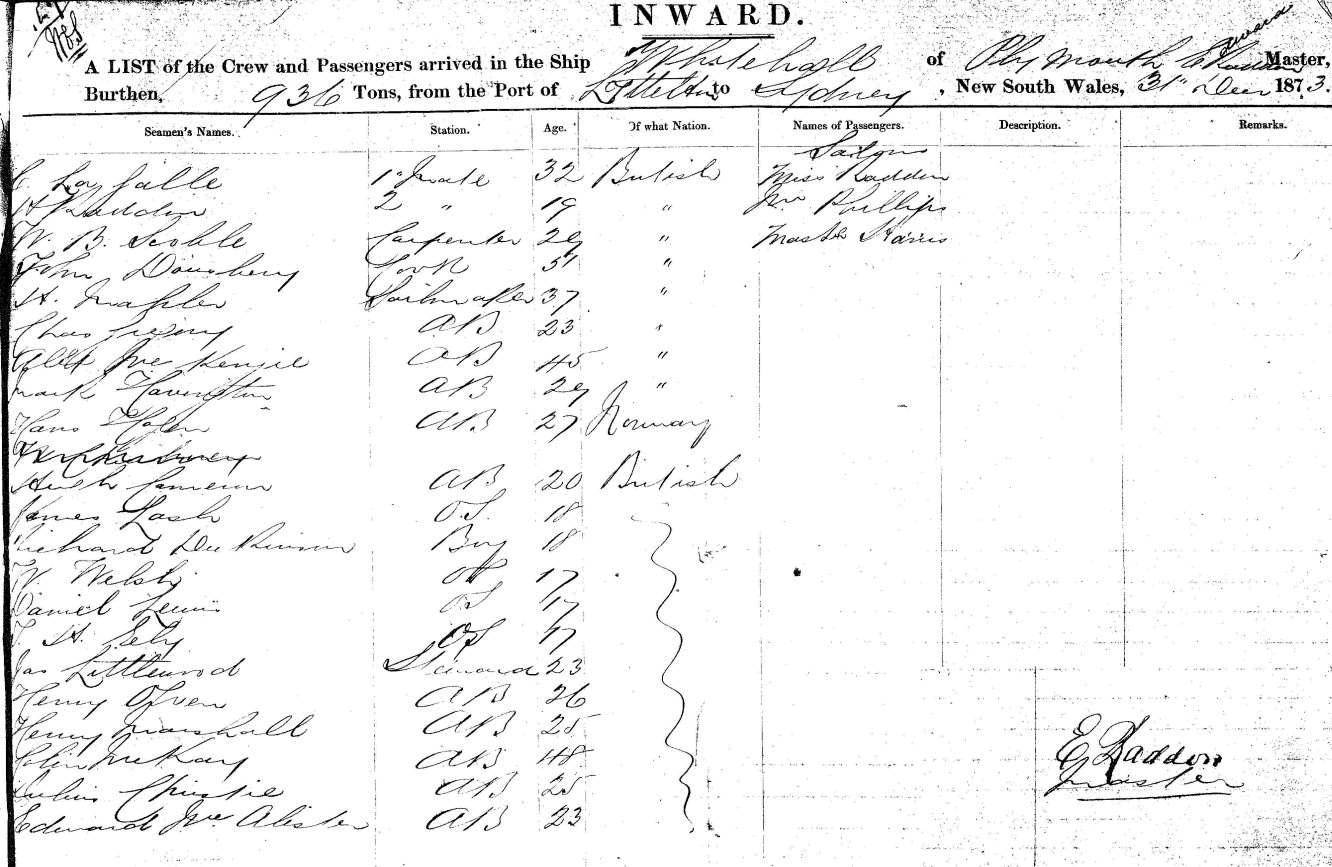 INWARD.
A LIST of the Crew and Passengers arrived in the Ship Whitehall of Plymouth Edward Raddon Master,
Burthen, 936 Tons, from the Port of Lyttelton to Sydney, New South Wales, 31st Decr 1873.
Seamen's Names. Station. Age. Of what Nation. Names of Passengers. Description. Remarks.
Saloon
1st Mate 32 British Miss Raddon
H Raddon 2 " 19 " Mr Phillips
W. B. Scoble Carpenter 29 " Master Harris
John Cook 51 "
H. Sailmaker 37 "
Chas AB 23 "
Alex McKensie AB 45 "
Mark Havington AB 29 "
Hans Holen AB 27 Norway
Hugh Cameron AB 20 British
James Lash O.S. 18
Richard Dickinson Boy 18
W. Welsh OS 17
Daniel Lewis OS 17
H. Sely OS 17
Jas Littlewood Steward 23
Henry AB 26
Henry Marshall AB 25
Colin McKay AB 48
Julius Christie AB 25
Edward McAlister AB 23
E Raddon
Master